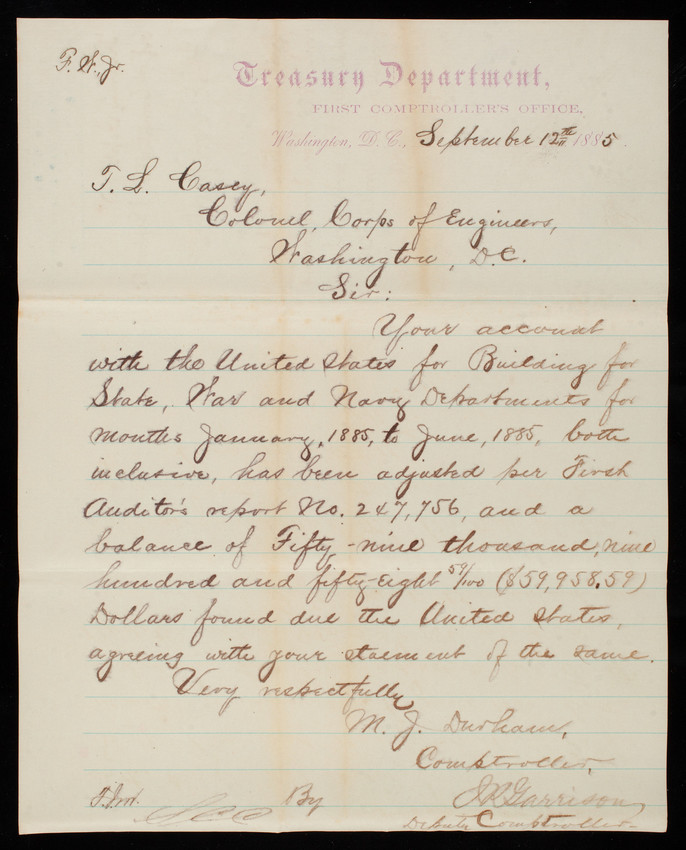 F. W., Jr.
Treasury Department,
FIRST COMPTROLLER'S OFFICE,
Washington, D. C., September 12th 1885.
T. L. Casey,
Colonel, Corps of Engineers,
Washington, D.C.
Sir:
Your account
with the United States for Building for
State, War and Navy Departments for
months January, 1885, to June, 1885, both
inclusive, has been adjusted per First
Auditor's report No. 247,756, and a
balance of Fifty-nine thousand, nine
hundred and fifty-eight 59/100 ($59,958.59)
Dollars found due the United States,
agreeing with your staement of the same.
Very respectfully
M. J. Durham,
Comptroller,
By
J R Garrison
Deputy Comptroller.